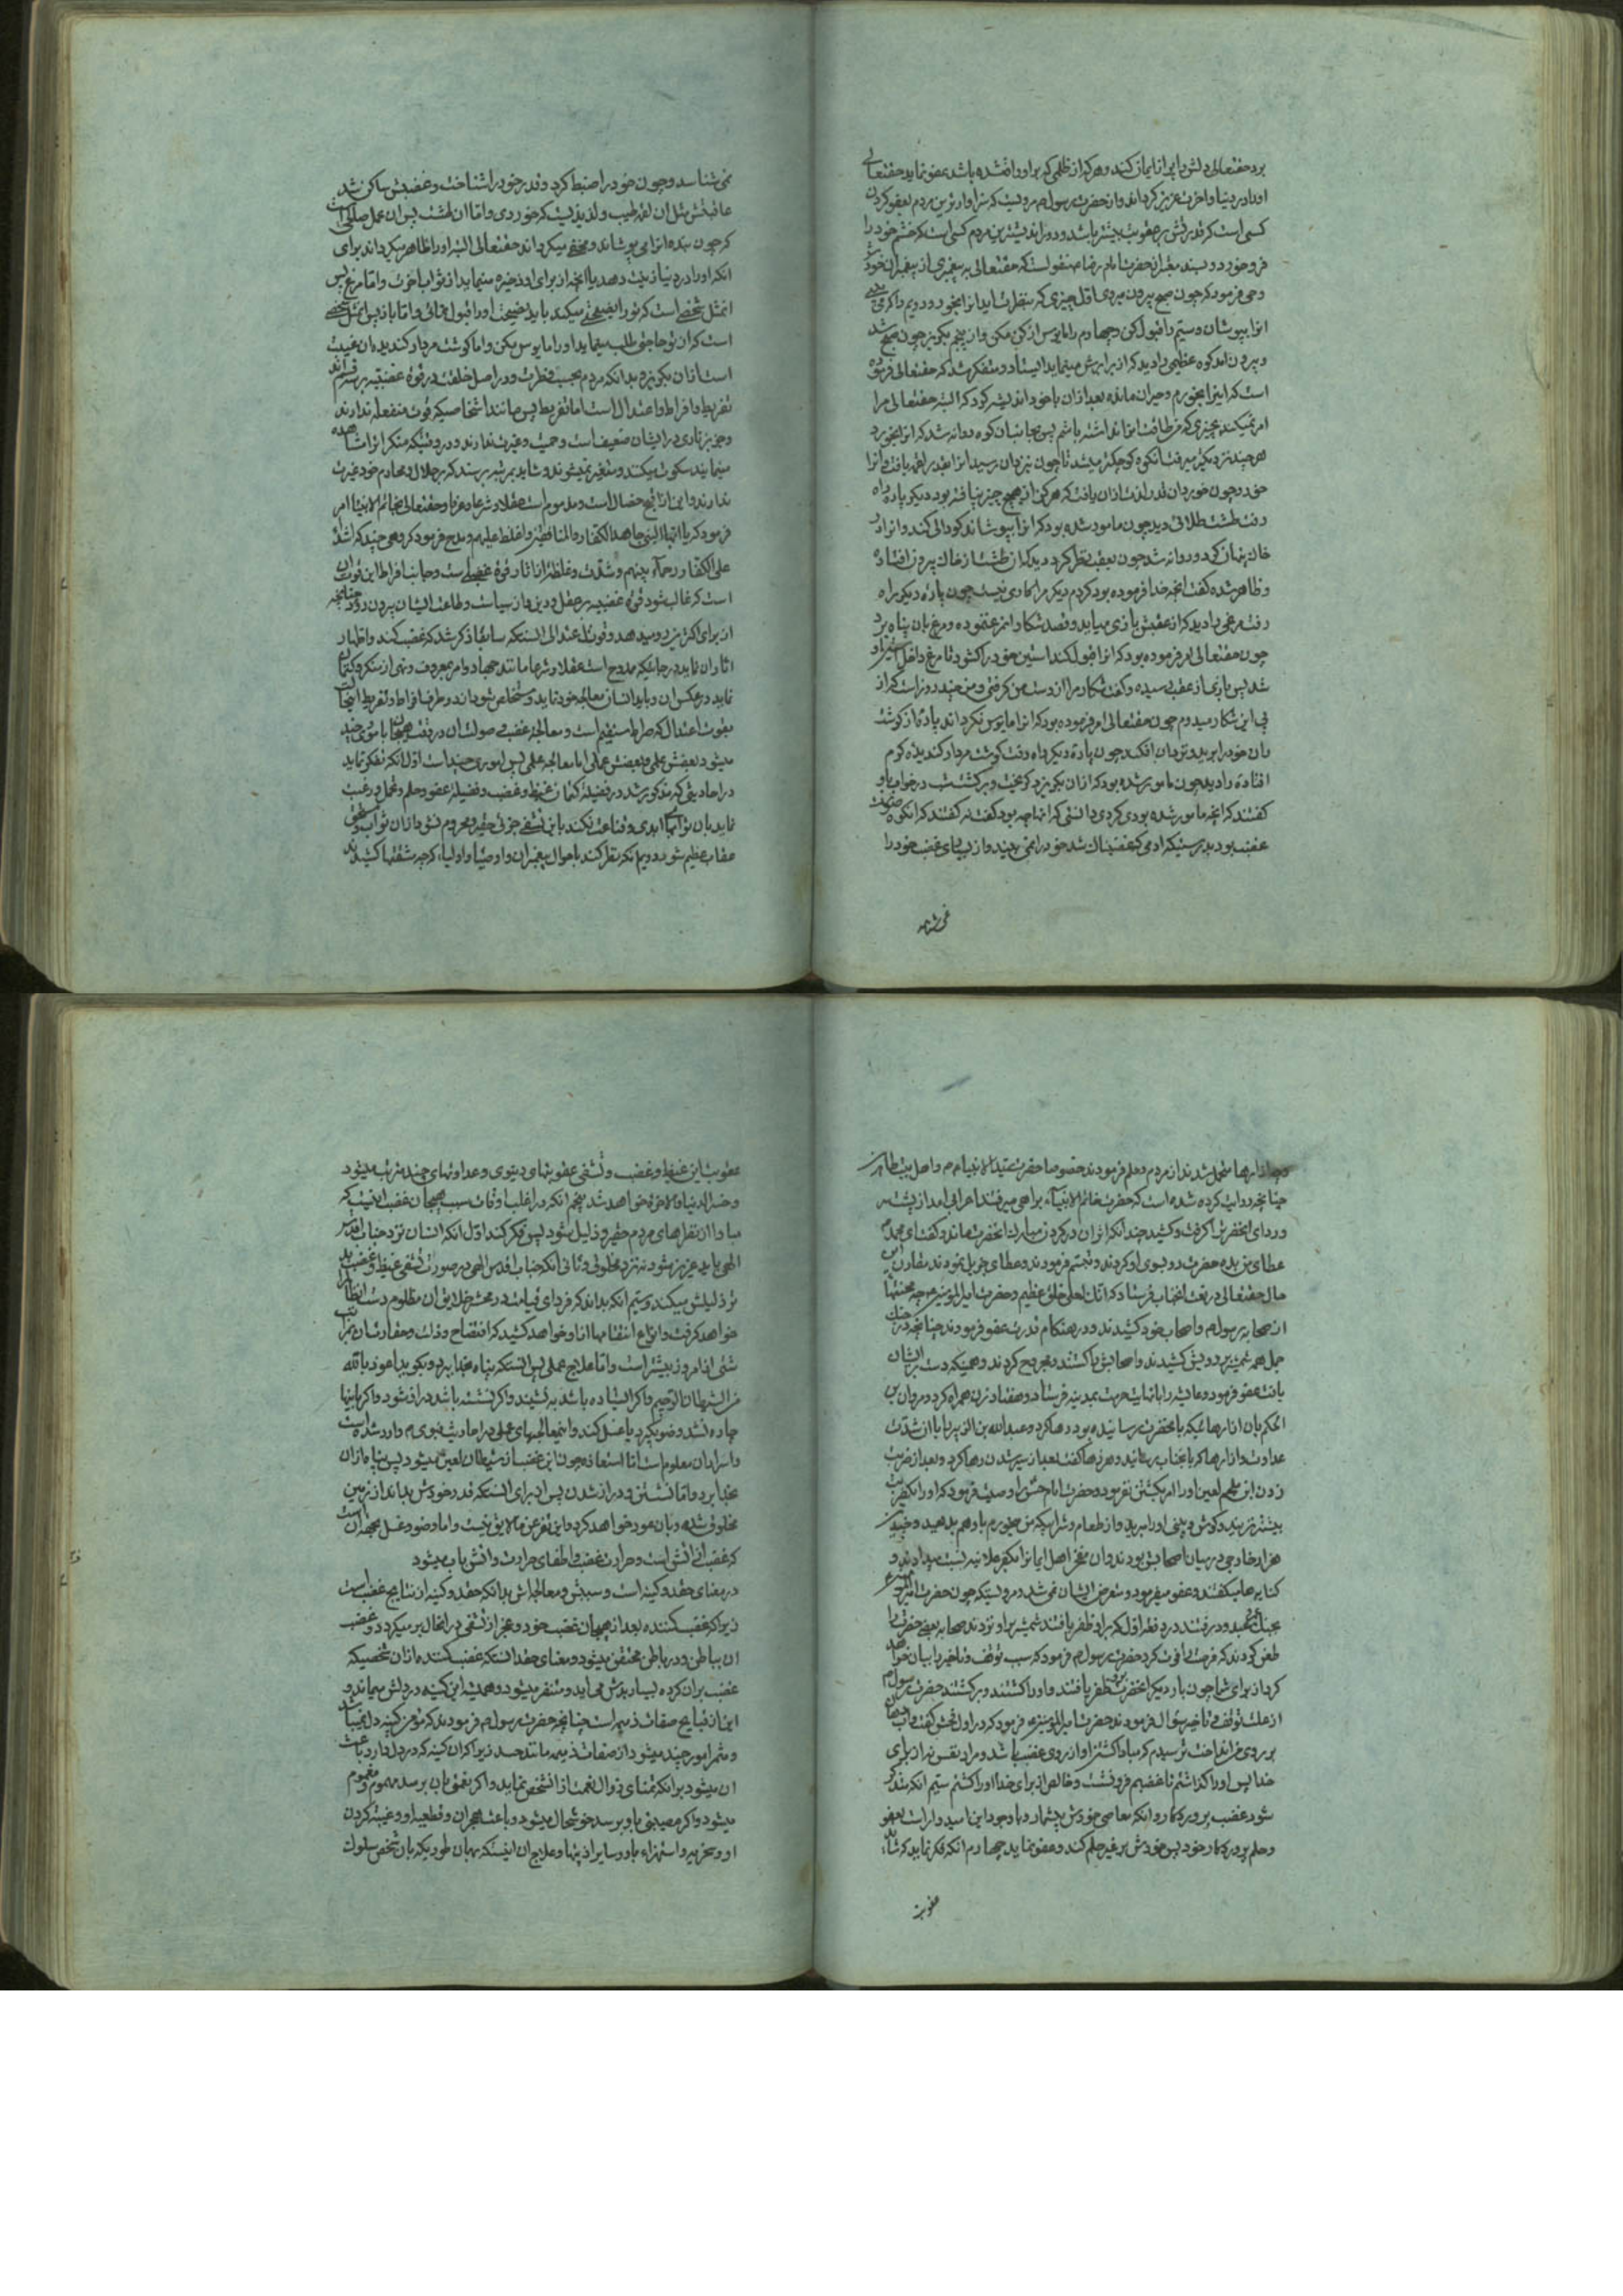 برد حقتعالی دلش را پر از ایمان کند و هر که از ظلمی که بر او واقع شده باشد عفو نماید حقتعالی
او را در دنیا و آخرت عزیز کرداند و از حضرت رسول م مرویست که سزاوارترین مردم بعفو کردن
کسی است که قدرتش بر عقوبت بیشتر باشد و دوراندیشترین مردم کسی است که خشم خود را
فرو خورد و بسند معتبر از حضرت امام رضا ع منقولست که حقتعالی به پیغمبری از پیغمبران خود
وحی فرمود که چون صبح بیرون میروی اول چیزی که بنظرت اید انرا بخور و دویم را که می بینی
انرا بپوشان و سیم را قبول کن و چهارم را مایوس از کن مکن و از پنجم بکریز چون صبح شد
و بیرون امد کوه عظیمی را دید که از برابرش مینماید ایستاد و متفکر شد که حقتعالی فرموده
است که اینرا بخورم و حیران مانده بعد از ان با خود اندیشه کرد که البته حقتعالی مرا
امر نمیکند بچیزی که من طاقت انرا نداشته باشم پس بجانب ان کوه روانه شد که انرا بخورد
هر چند نزدیکتر میرفت انکوه کوچکتر میشد تا چون نزد ان رسید انرا بقدر لقمه یافت و انرا
خورد و چون خورد ان قدر لذت از ان یافت که هرکز از هیچ چیز نیافته بود دیکر پاره راه
رفت طشت طلائی دید چون مامور شده بود که انرا بپوشاند کودالی کند و انرا در
خاک پنهان کرد و روانه شد چون بعقب نظر کرد دید که ان طشت از خاک بیرون افتاده
و ظاهر شده کفت انچه خدا فرموده بود کردم دیکر مرا کاری نیست چون پاره دیکر راه
رفت مرغی را دید که از عقبش بازی میاید و قصد شکار او نموده و مرغ بان پناه برد
چون حقتعالی امر فرموده بود که انرا قبول کند استین خود را کشود تا مرغ داخل استین او
شد پس باز از عقب رسیده و کفت شکار مرا از دست من کرفتی و من چند روز است که از
پی این شکار میدوم چون حقتعالی امر فرموده بود که انرا مایوس نکرداند پاره از کوشت
ران خود را برید و نزد ان افکند چون پاره دیکر راه رفت کوشت مردار کندیده کرم
افتاده را دید چون مامور شده بود که از ان بکریزد کریخت و برکشت شب در خواب باو
کفتند که انچه مامور شده بودی کردی دانستی که انها چه بود کفت نه کفتند که انکوه صورت
غضب بود بدرستیکه ادمی که غضبناک شد خود را نمی بیند و از برای غضب خود را
نمی شناسد
نمی شناسد و چون خود را ضبط کرد و قدر خود را شناخت و غضبش ساکن شد
عاقبتش مثل ان لقمه طیب و لذیذیست که خوردی و اما ان طشت پس ان عمل صالح است
که چون بنده انرا می پوشاند و مخفی میکرداند حقتعالی البته او را ظاهر میکرداند برای
انکه او را در دنیا زینت دهد با انچه از برای او ذخیره مینماید از ثواب اخرت و اما مرغ پس
انمثل شخصی است که تو را نصیحتی میکند باید نصیحت او را قبول نمائی و اما باز پس انمثل شخصی
است که ان تو حاجتی طلب مینماید او را مایوس مکن و اما کوشت مردار کندیده ان غیبت
است از ان بکریز و بدانکه مردم بحسب فطرت و در اصل خلقت در قوه غضبیه بر سه قسم اند
تفریط و افراط و اعتدال است اما تفریط پس مانند اشخاصیکه قوت منفعله ندارند
نمایند سکوت میکنند و متغیر نمیشوند و شاید بمرتبه برسند که بر حلال و محارم خود غیرت
ندارند و این از قبایح خصال است و مذموم است عقلا و شرعا و عرفا و حقتعالی بخاتم الانبیا امر
فرمود که یا ایها النبی جاهد الکفار و المنافقین و اغلظ علیهم و مدح فرمود کروهی چند که اشداء
علی الکفار رحماء بینهم و شدت و غلظت از اثار قوه غضبیه است و جانب افراط این قوت ان
است که غالب شود قوه غضبیه بر عقل و دین و از سیاست و طاعت ایشان بیرون رود چنانچه
از برای اکثر مردم میدهد و قوت اعتدالی انستکه سابقا ذکر شد که غضب کند و اظهار
اثار ان نماید در جائیکه ممدوح است عقلا و شرعا مانند جهاد و امر بمعروف و نهی از منکر و کتمان
نماید در عکس ان و باید انسان معالجه خود نماید و مستخلص شود از دو طرف افراط و تفریط
بقوت اعتدال که صراط مستقیم است و معالجه غضب و صولت ان در وقت هیجان با موری چند
میشود بعضش علمی و بعضش عملی اما معالجه علمی پس اموری چند است اول انکه تفکر نماید
در احادیثی که مذکور شد در فضیلت کتمان غیظ و غضب و فضیلت عفو و حلم و تحمل و رغبت
نماید بان ثوابهای ابدی و قناعت نکند باین تشفی جزئی حقیر و محروم نشود از ان ثواب و مستحق
عقاب عظیم شود دویم انکه نظر کند باحوال پیغمبران و اوصیا و اولیاء که چه مشقتها کشیدند
و چه ازارها متحمل شدند از مردم و حلم فرمودند خصوصا حضرت سید الانبیا م و اهل بیت طاهرین
چنانچه روایت کرده شده است که حضرت خاتم الانبیاء براهی میرفتند اعرابی امد از پشت سر
و ردای انحضرت را کرفت و کشید چندانکه اثر ان در کردن مبارک انحضرت ماند و کفت ای محمد م
عطای من بده حضرت رو بسوی او کردند و تبسم فرمودند و عطای جزیل نمودند مقارن این
حال حقتعالی در نعت انجناب فرستاد که انک لعلی خلق عظیم و حضرت امیرالمومنین ع چه محنتها
از صحابه رسول م و اصحاب خود کشیدند و در هنکام قدرت عفو فرمودند چنانچه در جنک
جمل همه شمشیر در رویش کشیدند و اصحابش را کشتند و مجروح کردند و همینکه دست بر ایشان
یافت عفو فرمود و عایشه را با نهایت حرمت بمدینه فرستاد و هفتاد زن همراه کرد و مروان بن
الحکم بان ازارهائیکه بانحضرت رسانیده بود رها کرد و عبدالله بن الزبیر را با ان شدت
عداوت و ازارها که بانجناب رسانید و هرزها کفت بعد از اسیر شدن رها کرد و بعد از ضربت
زدن ابن ملجم لعین او را امر بکشتن نفرمود و حضرت امام حسن را وصیت فرمود که او را یکضربت
بیشتر نزنید و کوش و بینی او را نبرید و از طعام و شرابیکه من میخورم باو هم بدهید و چندین
هزار خارجی در میان اصحابش بودند و ان مفخر اهل ایمانرا بکفر علانیه نسبت میدادند و
کنایه ها میکفتند و عفو میفرمود و متعرض ایشان نمی شد و مرویستکه چون حضرت امیر المومنین ع
طعن کردند که فرصت را فوت کرد حضرت رسول م فرمود که سبب توقف و تاخیر را بیان خواهد
کرد از برای شما چون بار دیکر انحضرت بر او ظفر یافتند و او را کشتند و برکشتند حضرت رسول م
از علت توقف و تاخیر سؤال فرمودند حضرت امیرالمومنین ع فرمود که در اول فحش کفت و اب دهان
بر روی من انداخت ترسیدم که مبادا کشتن او از روی غضب باشد و مراد نفس نه از برای
خدا پس او را کذاشتم تا غضبم فرو نشست و خالص از برای خدا او را کشتم سیم انکه متذکر
شود غضب پروردکار را و انکه معاصی خودش بیشمار و با وجود این امیدوار است بعفو
و حلم پروردکار خود پس خودش بر غیر حلم کند و عفو نماید چهارم انکه فکر نماید که شاید
عقوبت
عقوبت این غیظ و غضب و تشفی عقوبتهای دنیوی و عداوتهای چند مترتب میشود
و خسر الدنیا و الاخرة خواهد شد پنجم انکه در اغلب اوقات سبب هیجان غضب اینست که
مبادا از نظرهای مردم حقیر و ذلیل شود پس فکر کند اول انکه انسان نزد جناب اقدس
الهی باید عزیز شود نه نزد مخلوقی و ثانی انکه جناب اقدس الهی در صورت تشفی غیظ و غضب
تو ذلیلش میکند و سیم انکه بداند که فردای قیامت در محشر خلایق ان مظلوم دست انتقام
خواهد کرفت و انواع انتقامها از او خواهد کشید که افتضاح و ذلت و حقارتشان بمراتب
شتی از امروز بیشتر است و اما علاج عملی پس انستکه پناه بخدا ببرد و بکوید اعوذ بالله
من الشیطان الرجیم و اکر ایستاده باشد بنشیند و اکر نشسته باشد دراز شود و اکر باینها
چاره نشد وضو بکیرد یا غسل کند و اینمعالجهای عملی در احادیث نبوی م وارد شده است
و اسرار ان معلوم است اما استعاذه چون این غضب از شیطان لعین میشود پس پناه از ان
بخدا برد و اما نشستن و دراز شدن پس از برای انستکه قدر خودش بداند از زمین
مخلوق شده و بان عود خواهد کرد و این تفرعن ما لایق نیست و اما وضو و غسل بجهة ان است
که غضب اتشی است و حرارت غضب و اطفای حرارت و اتش باب میشود
در معنای حقد و کینه است و سببش و معالجه اش بدانکه حقد و کینه از نتایج غضب است
زیرا که غضب کننده بعد از هیجان غضب خود و عجز از تشفی در انحال بر میکردد و غضب
ان بباطن و در باطن محتقن میشود و معنای حقد انستکه غضب کننده از ان شخصیکه
غضب بر ان کرده بسیار بدش می اید و متنفر میشود و همیشه این کینه در دلش میماند و
این از قبایح صفات ذمیمه است چنانچه حضرت رسول م فرمودند که مؤمن کینه دل نمیباشد
و مثمر امور چند میشود از صفات ذمیمه مانند حسد زیرا که ان کینه که در دل دارد باعث
ان میشود بر انکه تمنای زوال نعمت از انشخص نماید و اکر نعمتی بان برسد مهموم و مغموم
میشود و اکر مصیبتی باو برسد خوشحال میشود و باعث هجران و قطعیه او و غیبت کردن
او و سخریه و استهزاء باو و سایر اذیتها و علاج ان اینستکه بهمان طوریکه بان شخص سلوک